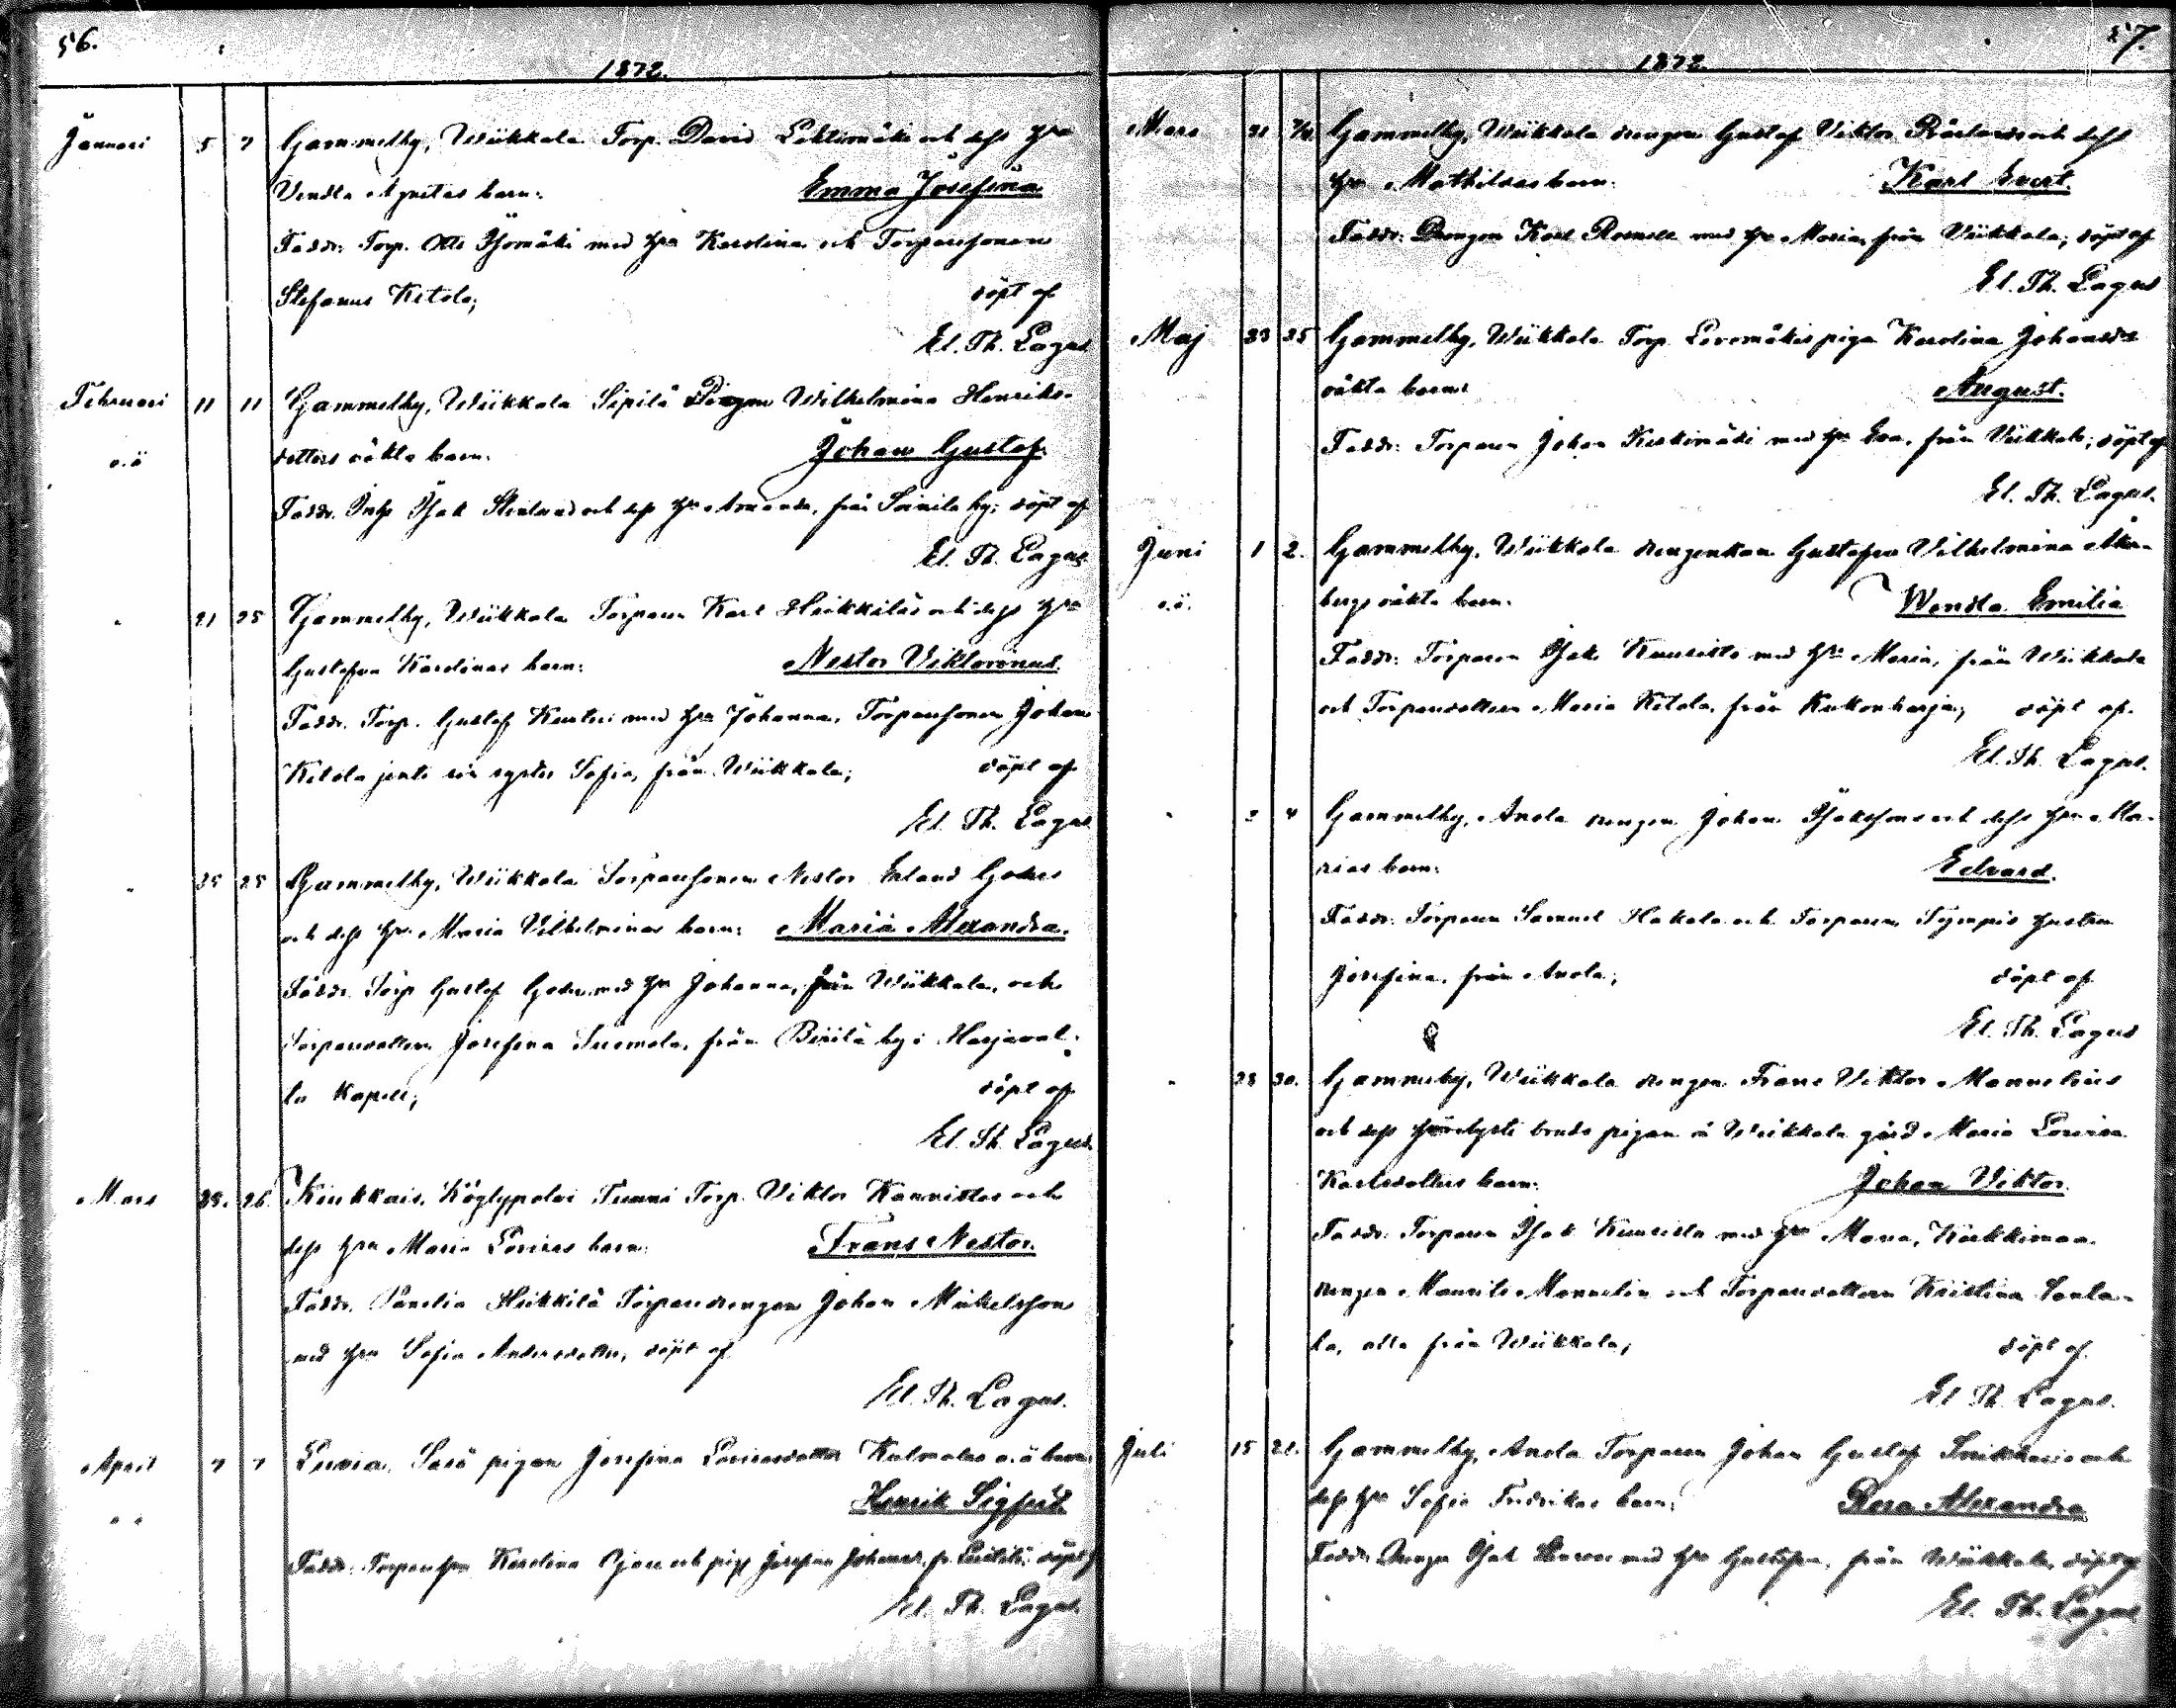 56.
1872.
Januari 5 7 Gammelby, Wiikkala Torp. David Lektimäki och dess hru
Vendla Agnetas barn: Emma Josefina
Faddr: Torp. Otto Isomäki med hru Karolina och Torparesonen
Stefanus Ketola; döpt af
El. Th. Lagus
Februari 11 11 Gammelby, Wiikkala Sipilä Pigan Wilhelmina Henriks-
o.ä dotters oäkta barn. Johan Gustaf.
Faddr. Inhs Isak och dess hru Amanda, från Soinila by; döpt af
El. Th. Lagus
" 21 25 Gammelby, Wiikkala Torparen Karl Heikkiläs och dess hru
Gustafva Karolinas barn: Nestor Viktorinus.
Faddr. Torp. Gustaf med hru Johanna, Torparesonen Johan
Ketola jemte sin syster Sofia, från Wiikkala; döpt af
El. Th. Lagus
" 25 25 Gammelby, Wiikkala Torparesonen Nestor Erland
och dess hru Maria Vilhelminas barn: Maria Alexandra.
Faddr. Torp Gustaf med hru Johanna, från Wiikkala, och
Torparedottern Josefina Suomela, från by i Harjaval-
la Kapell; döpt af
El. Th. Lagus.
Mars 26. Kiukkais, Köylypolvi Torp. Viktor Kannistos och
dess hru Maria Lovisas barn: Frans Nestor.
Faddr. Panelia Heikkilä Torparedrengen Johan Mickelsson
med hru Sofia Andersdotter, döpt af
El. Th. Lagus.
April 7 7 Luvia, pigan Josefina o.ä barn
Henrik Sigfrid
Faddr. Torparehru Karolina och pig. Josefina Johansd. fr. döpt af
El. Th. Lagus.
57.
1872
Mars 31 Gammelby, Wiikkala drengen Gustaf Viktor och dess
hru Mathildas barn: Karl Evert.
Faddr: Drengen Karl med hru Maria, från Viikkala; döpt af
El. Th. Lagus
Maj 23 25 Gammelby, Wiikkala Torp. Levomäkis piga Karolina Johansdrs
oäkta barn: August.
Faddr: Torparen Johan Keskimäki med hru Eva, från Viikkala; döpt af
El. Th. Lagus.
Juni 1 2. Gammelby, Wiikkala drengenkan Gustafva Vilhelmina
o.ä. bergs oäkta barn. Wendla Emilia
Faddr: Torparen Isak Kuusisto med hru Maria, från Wiikkala
och Torparedottern Maria Ketola, från Kukonharja; döpt af.
El. Th. Lagus.
" 2 4 Gammelby, Anola drengen Johan Isakssons och dess hru Ma-
rias barn: Edvard.
Faddr: Torparen Samuel Hakala och Torparen hustru
Josefina, från Anola; döpt af
El. Th. Lagus
" 28 30. Gammelby, Wiikkala drengen Frans Viktor Mannelius
och dess brud pigan å Wiikkala gård Maria Lovisa
Karlsdotters barn: Johan Viktor.
Faddr: Torparen Isak Kuusisto med hru Maria,
drengen Maurits Mannelin och Torparedottern Kristina
la, alla från Wiikkala; döpt af
El Th. Lagus.
Juli 15 21. Gammelby, Anola Torparen Johan Gustaf och
dess hru Sofia Fredrikas barn: Rosa Alexandra
Faddr. Drengen Isak med hru Gustafva, från Wiikkala, döpt af
El. Th. Lagus